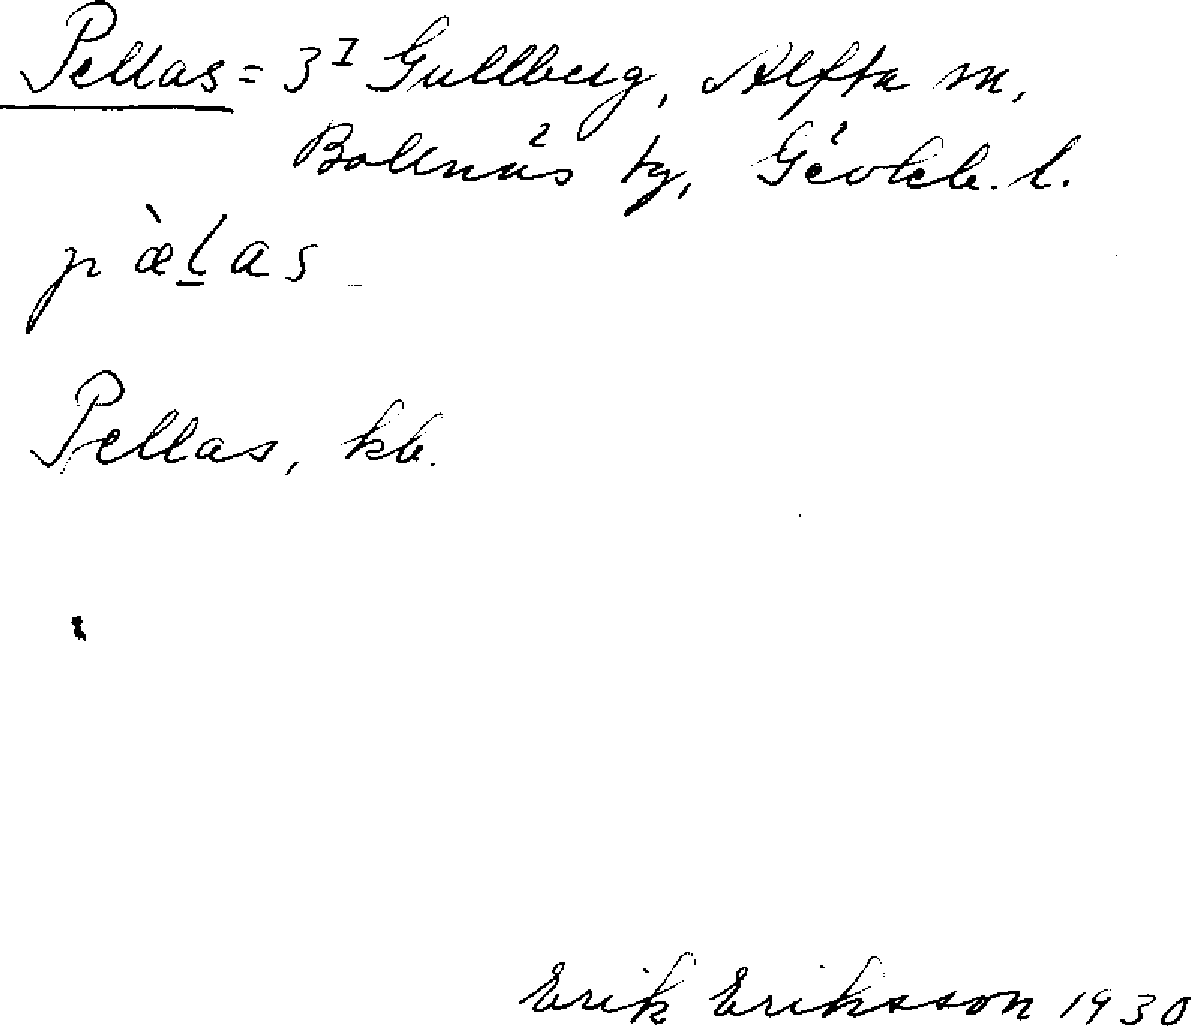 Pellas = 3^I Gullberg, Alfta sn,
Bollnäs tg, Gävleb. l.
p æ̀l̠as
Pellas, kb.
Erik Eriksson 1930